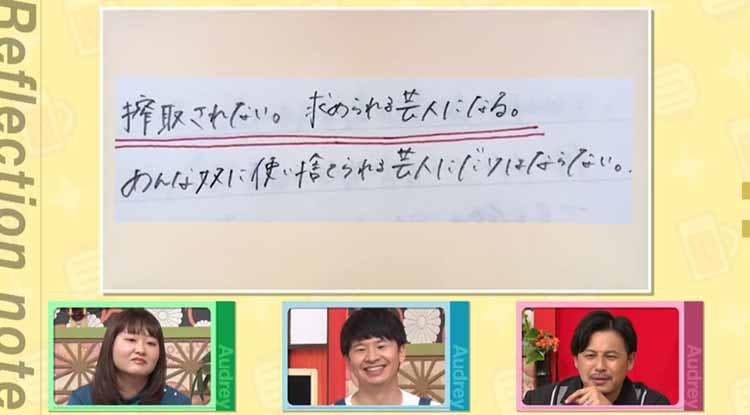 Reflection note
搾取されない。求められる芸人になる。
あんな奴に使い捨てられる芸人にだけはならない。
Audrey
Audrey
Audrey